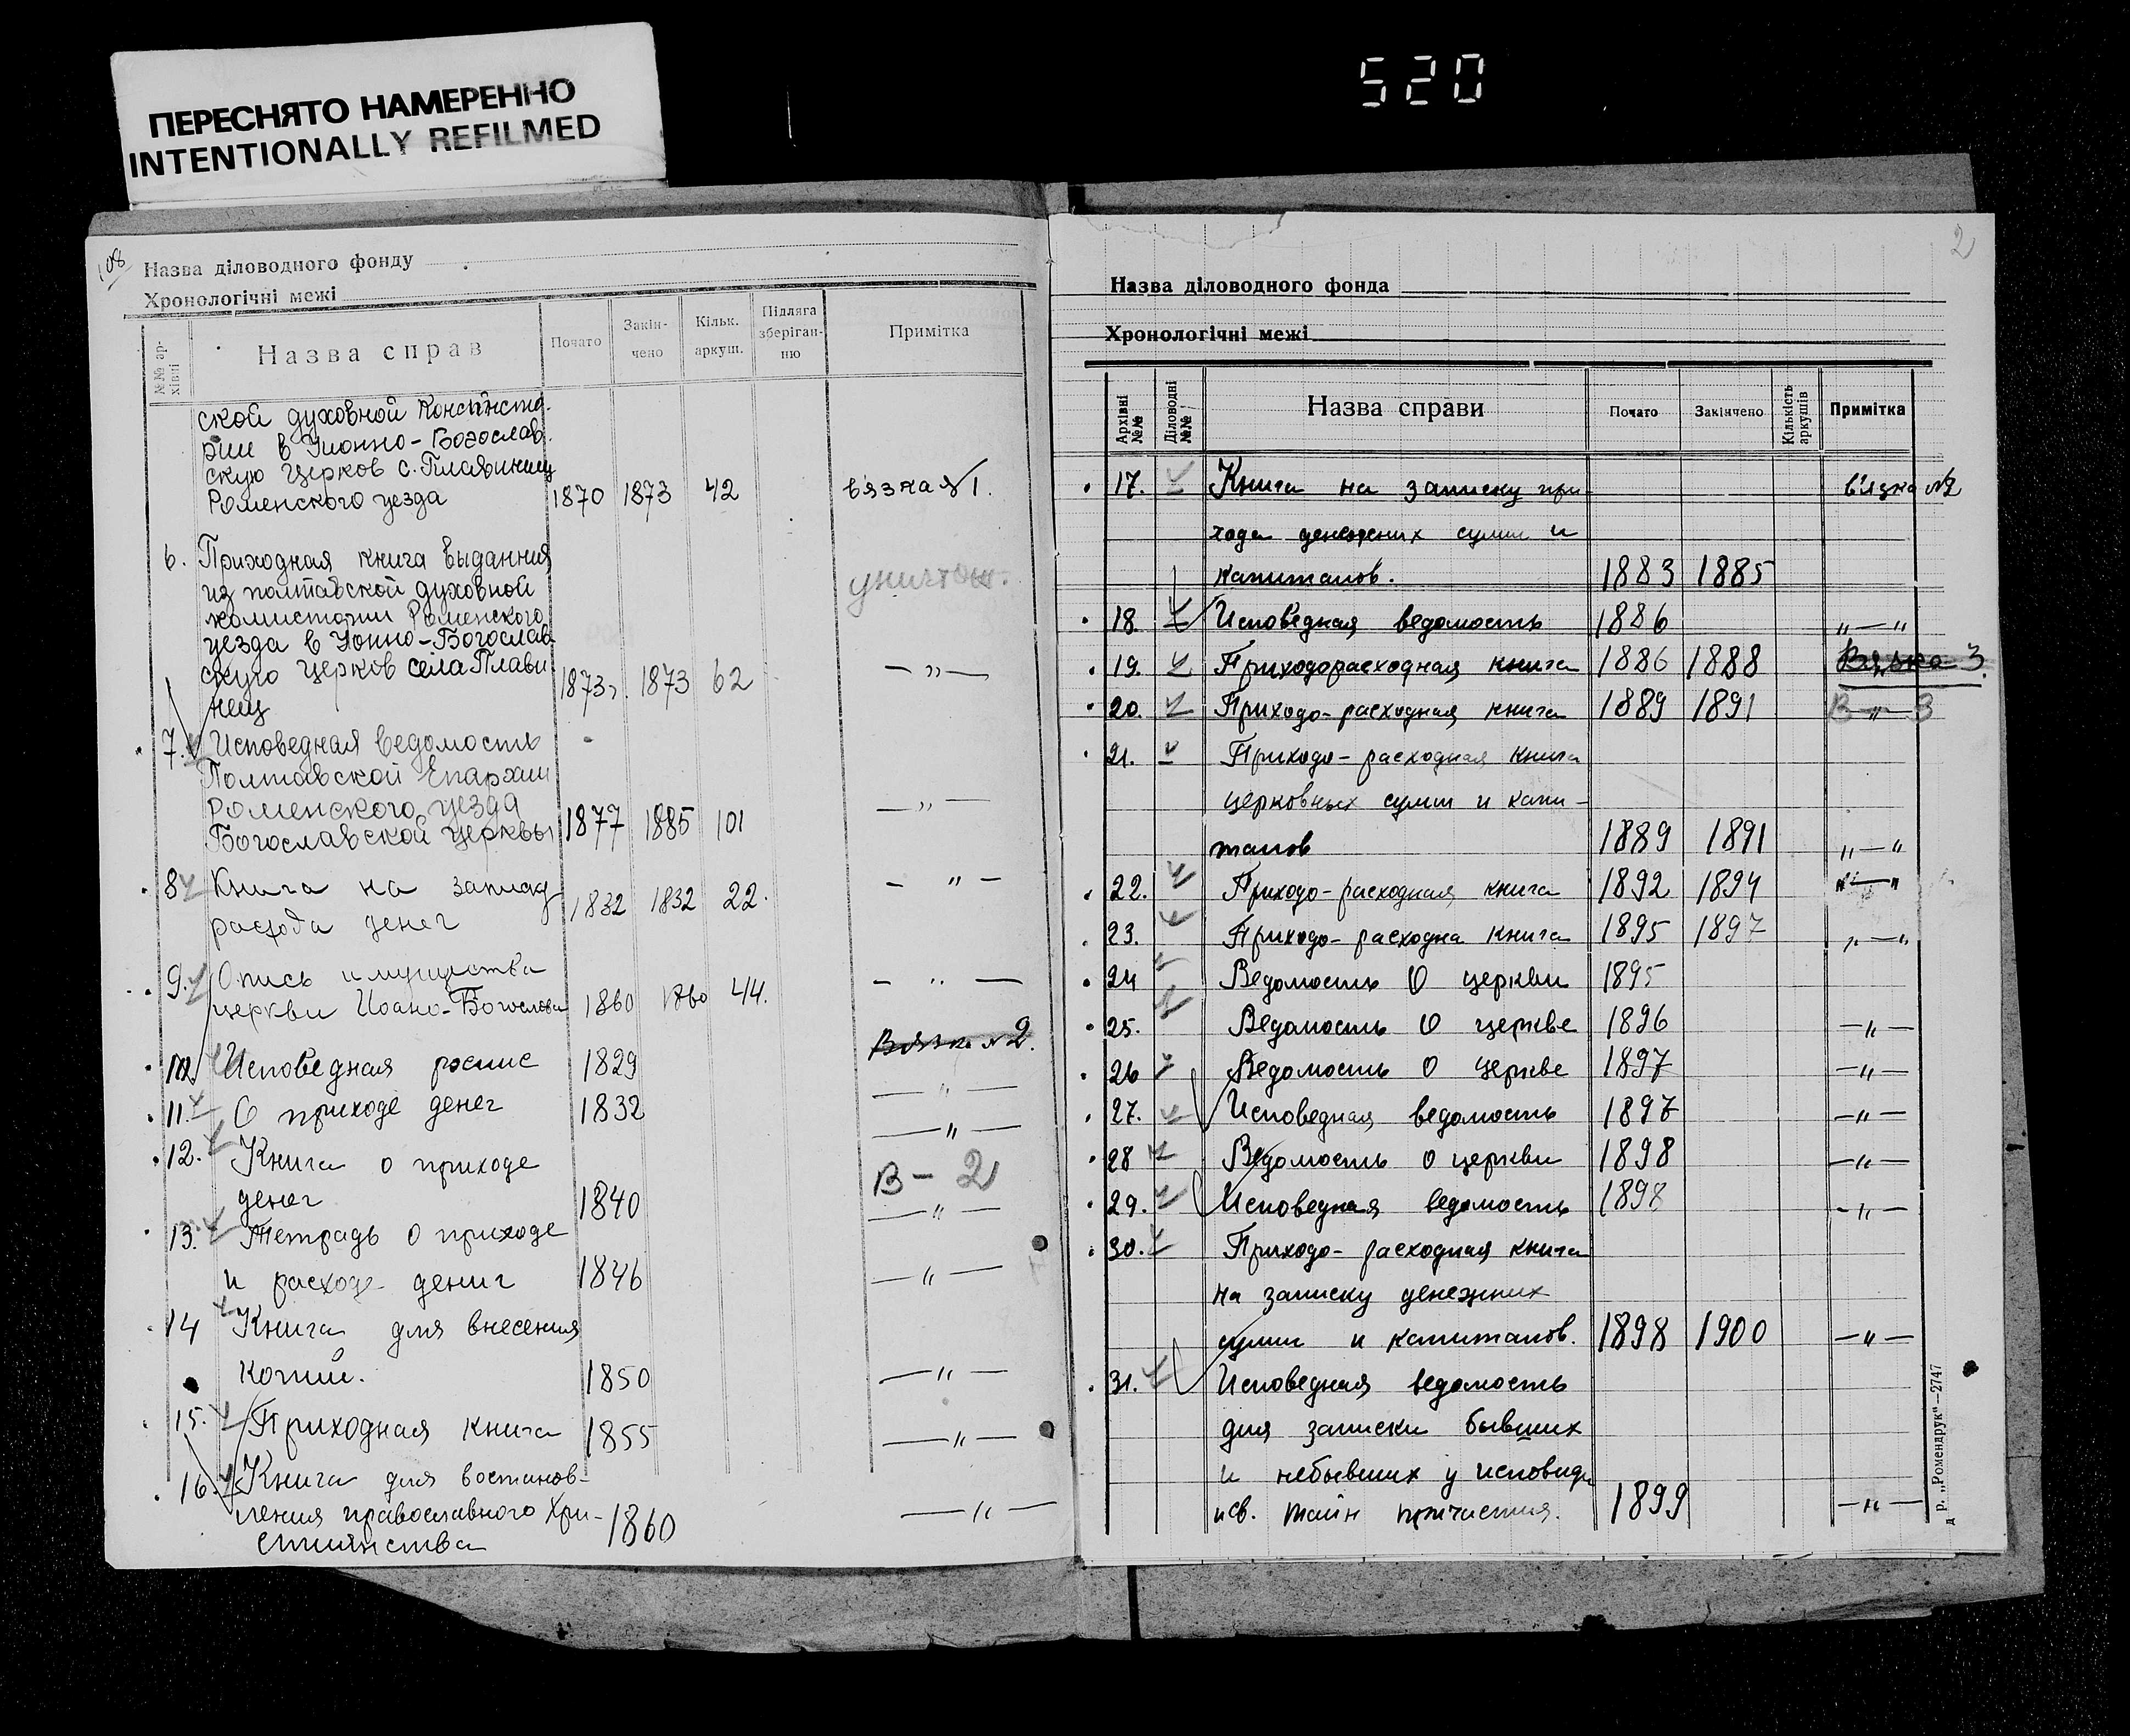 ПЕРЕСНЯТО НАМЕРЕННО
INTENTIONALLY REFILMED
520
108
Назва діловодного фонду
Хронологічні межі
№№ ар-
хівні
Назва справ
Почато
Закін-
чено
Кільк.
аркуш.
Підляга
зберіган-
ню
Примітка
ской духовной Консисто-
рии в Иоанно-Богослав.
скую церков с. Плавинищ
Роменского уезда 1870 1873 42 вязка №1.
6. Приходная книга выданния
из полтавской духовной уничтож.
комистории Роменского
уезда в Иоано-Богослав-
скую церков села Плави
нищ 1873г. 1873 62 — „ —
7. Исповедная ведомость
Полтавской Епархии
Роменского уезда
Богославской церквы 1877 1885 101 — „ —
8 Книга на записку
расхода денег 1832 1832 22. — „ —
9. Опись имущества
церкви Иоано-Богослова 1860 1860 44. — „ —
Вязка №2.
10. Исповедная роспис 1829 — „ —
11. О приходе денег 1832 — „ —
12. Книга о приходе В – 2
денег 1840 — „ —
13. Тетрадь о приходе
и расходе дениг 1846 — „ —
14 Книга для внесения
копий. 1850 — „ —
15. Приходная книга 1855 — „ —
16. Книга для востанов-
ления православного Хри-
стиянства 1860 — „ —
2
Назва діловодного фонда
Хронологічні межі
Архівні
№№
Діловодні
№№
Назва справи
Почато
Закінчено
Кількість
аркушів
Примітка
17. Книга на записку при- в'язка №2
хода денежних сумм и
капиталов. 1883 1885
18. Исповедная ведомость 1886 „—„
19. Приходорасходная книга 1886 1888 Вязка 3.
20. Приходо-расходная книга 1889 1891 В —„— 3
21. Приходо-расходная книга
церковных сумм и капи-
талов 1889 1891 „—„
22. Приходо-расходная книга 1892 1894 „—„
23. Приходо-расходна книга 1895 1897 „—„
24 Ведомость О церкви 1895
25. Ведомость О церкве 1896 —„—
26 Ведомость О церкве 1897 —„—
27. Исповедная ведомость 1897 —„—
28 Ведомость о церкви 1898 —„—
29. Исповедная ведомость 1898 —„—
30. Приходо-расходная книга
на записку денежних
сумм и капиталов. 1898 1900 —„—
31. Исповедная ведомость
для записки бывших
и небывших у исповиди
и св. тайн причастия. 1899 —„—
д р. „Ромендрук“—2747